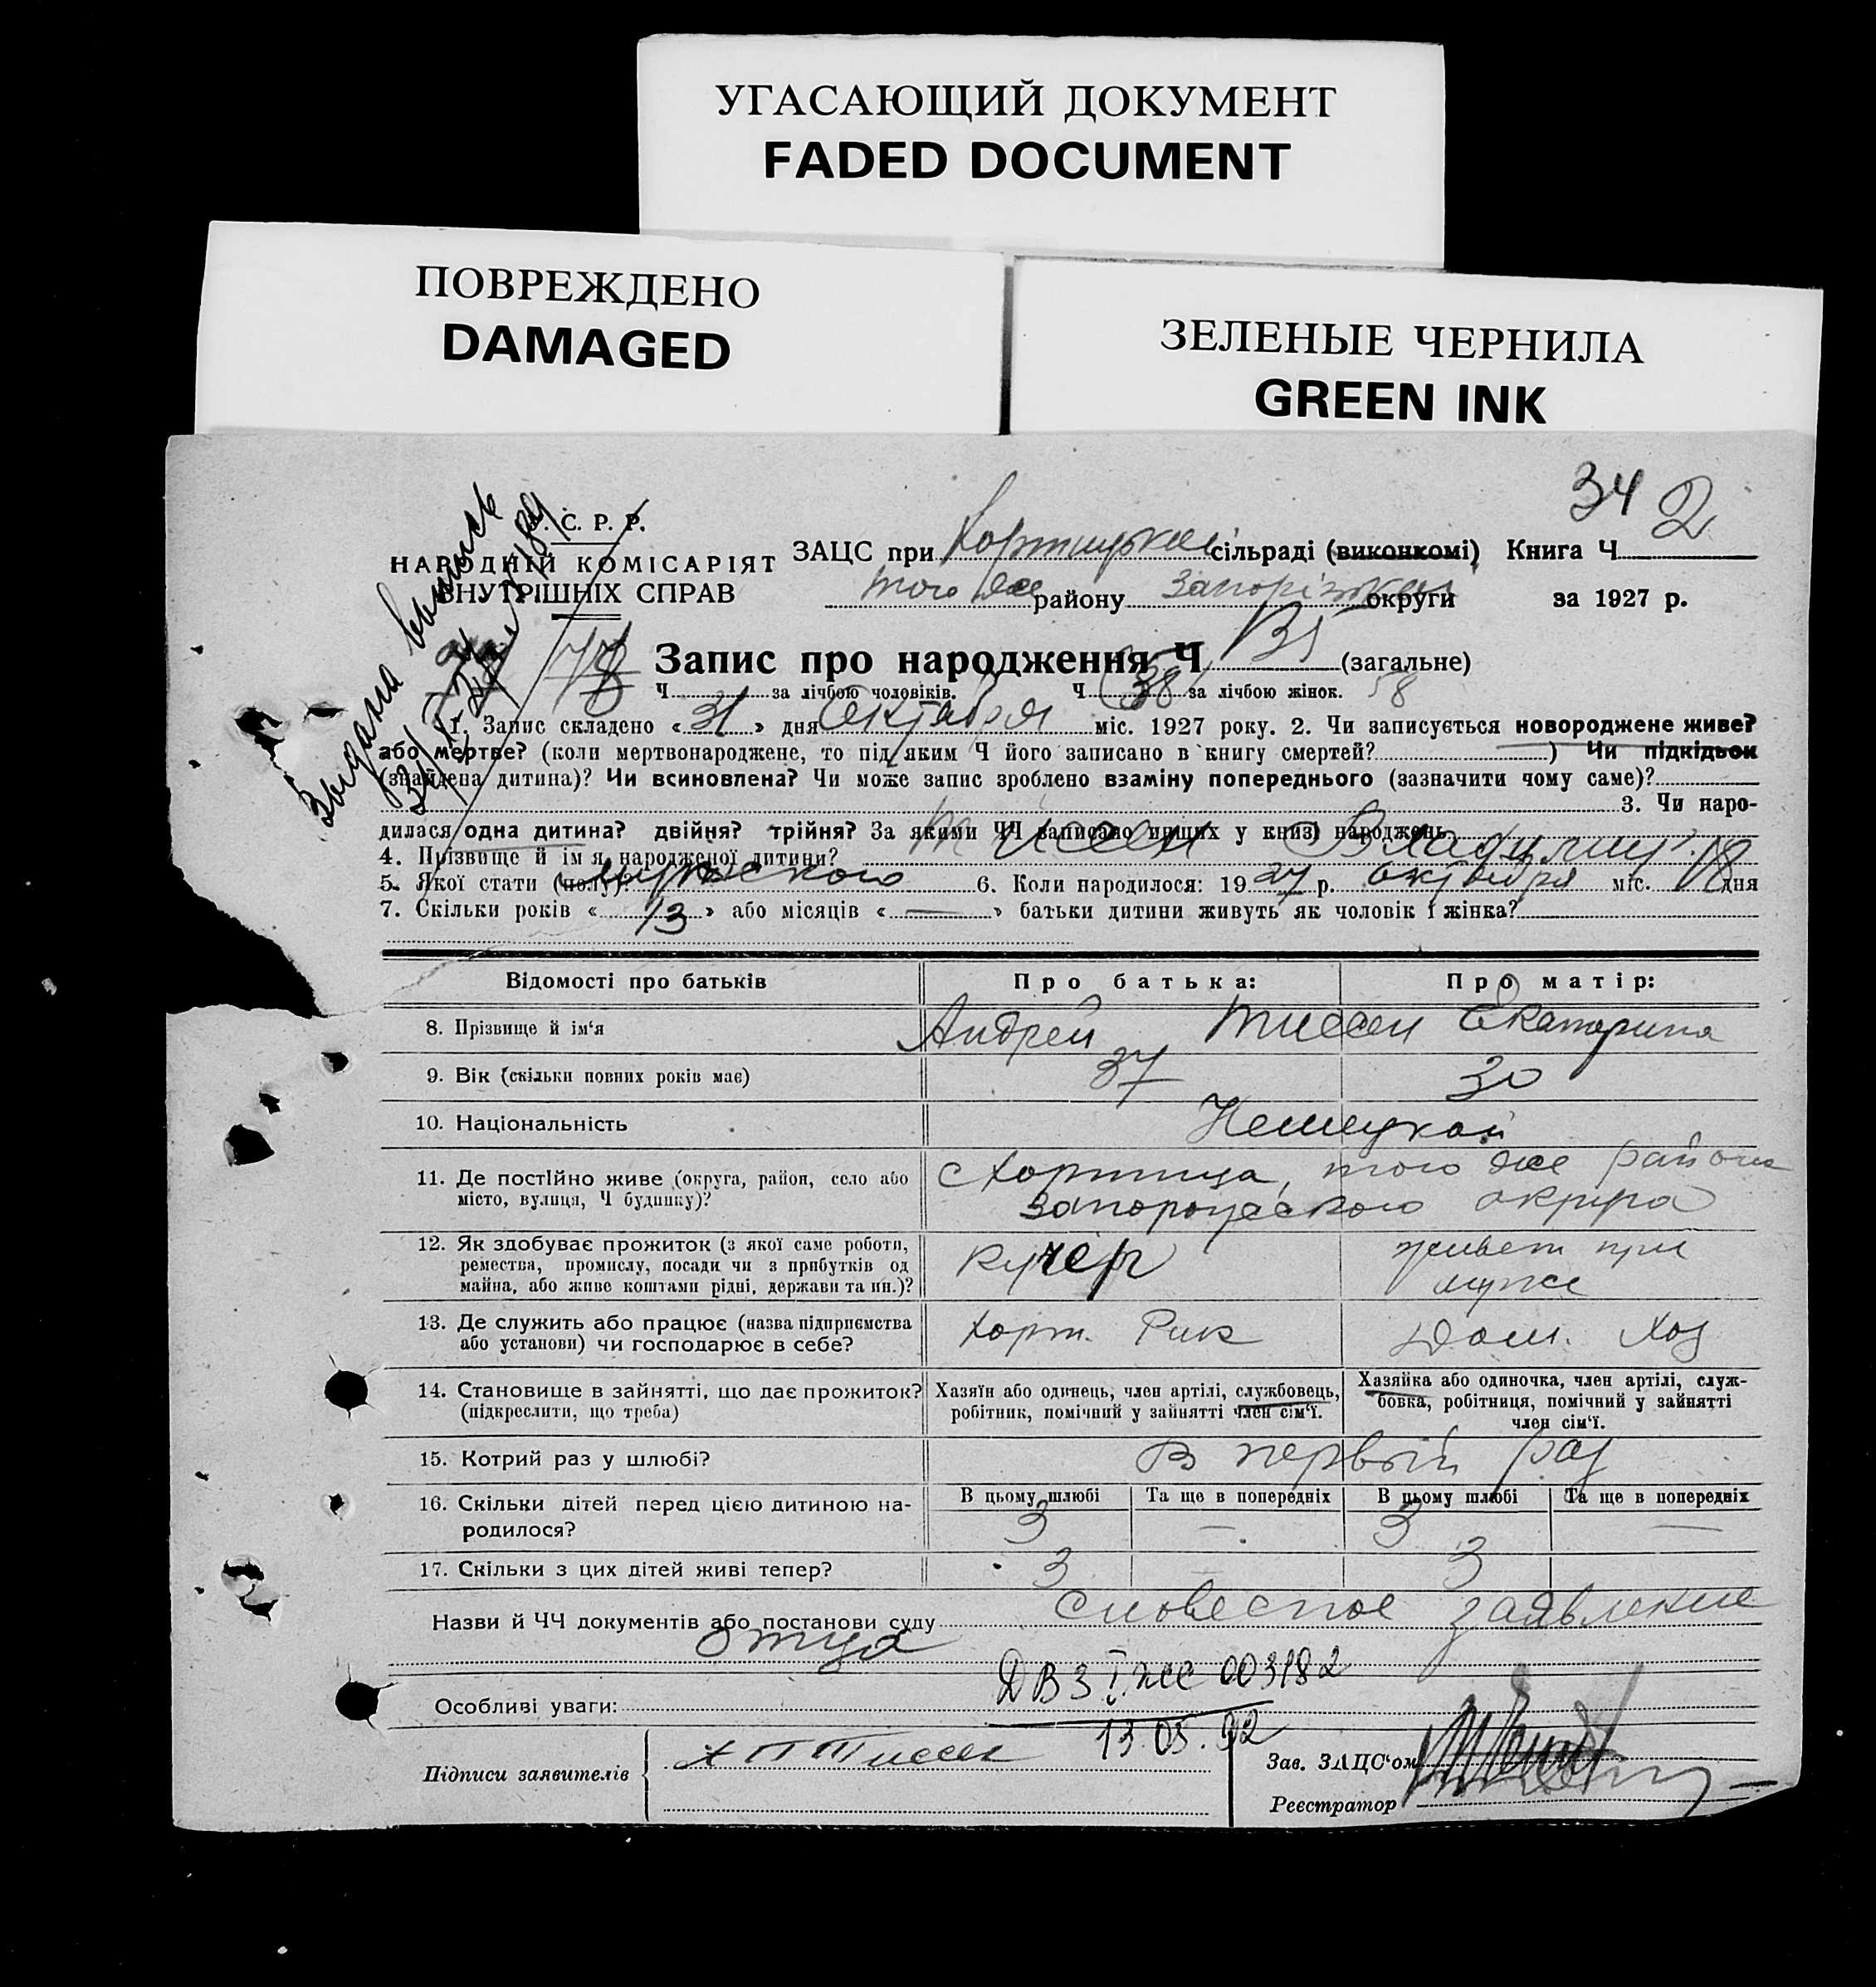 УГАСАЮЩИЙ ДОКУМЕНТ
FADED DOCUMENT
ПОВРЕЖДЕНО
DAMAGED
ЗЕЛЕНЫЕ ЧЕРНИЛА
GREEN INK
34 2
С. Р. Р.
НАРОДНІЙ КОМІСАРІЯТ
ВНУТРІШНІХ СПРАВ
Выдана выпись
ЗАЦС при Хортицькой сільраді (виконкомі) Книга Ч
того же району Запорізької округи за 1927 р.
Запис про народження Ч (загальне)
Ч за лічбою чоловіків. Ч 38 за лічбою жінок. 58
1. Запис складено «31» дня Октября міс. 1927 року. 2. Чи записується новороджене живе?
або мертве? (коли мертвонароджене, то під яким Ч його записано в книгу смертей? ) Чи підкідьок
(знайдена дитина)? Чи всиновлена? Чи може запис зроблено взаміну попереднього (зазначити чому саме)?
3. Чи наро-
дилася одна дитина? двійня? трійня? За якими ЧЧ записано инших у книзі народжень
4. Прізвище й ім'я народженої дитини? Тиссен Владимир
5. Якої стати (полу)? мужского 6. Коли народилося: 1927 р. октября міс. 18 дня
7. Скільки років «13» або місяців «—» батьки дитини живуть як чоловік і жінка?
Відомості про батьків Про батька: Про матір:
8. Прізвище й ім'я Андрей Тиссен Екатерина
9. Вік (скільки повних років має) 37 30
10. Національність Немецкой
11. Де постійно живе (округа, район, село або
місто, вулиця, Ч будинку)?
с Хортица, того же района
Запорожского округа
12. Як здобуває прожиток (з якої саме роботи,
ремества, промислу, посади чи з прибутків од
майна, або живе коштами рідні, держави та ин.)?
кучер
живет при
муже
13. Де служить або працює (назва підприємства
або установи) чи господарює в себе?
Хорт. Рик
Дом. Хоз
14. Становище в зайнятті, що дає прожиток?
(підкреслити, що треба)
Хазяїн або одинець, член артілі, службовець,
робітник, помічний у зайнятті член сім'ї.
Хазяйка або одиночка, член артілі, служ-
бовка, робітниця, помічний у зайнятті
член сім'ї.
15. Котрий раз у шлюбі? В первый раз
16. Скільки дітей перед цією дитиною на-
родилося?
В цьому шлюбі Та ще в попередніх В цьому шлюбі Та ще в попередніх
3 — 3 —
17. Скільки з цих дітей живі тепер? 3 — 3
Назви й ЧЧ документів або постанови суду словесное заявление
отца
ДВЗ I 003182
Особливі уваги:
13.05.92
Підписи заявителів А П Тиссен
Зав. ЗАЦС'ом
Реєстратор